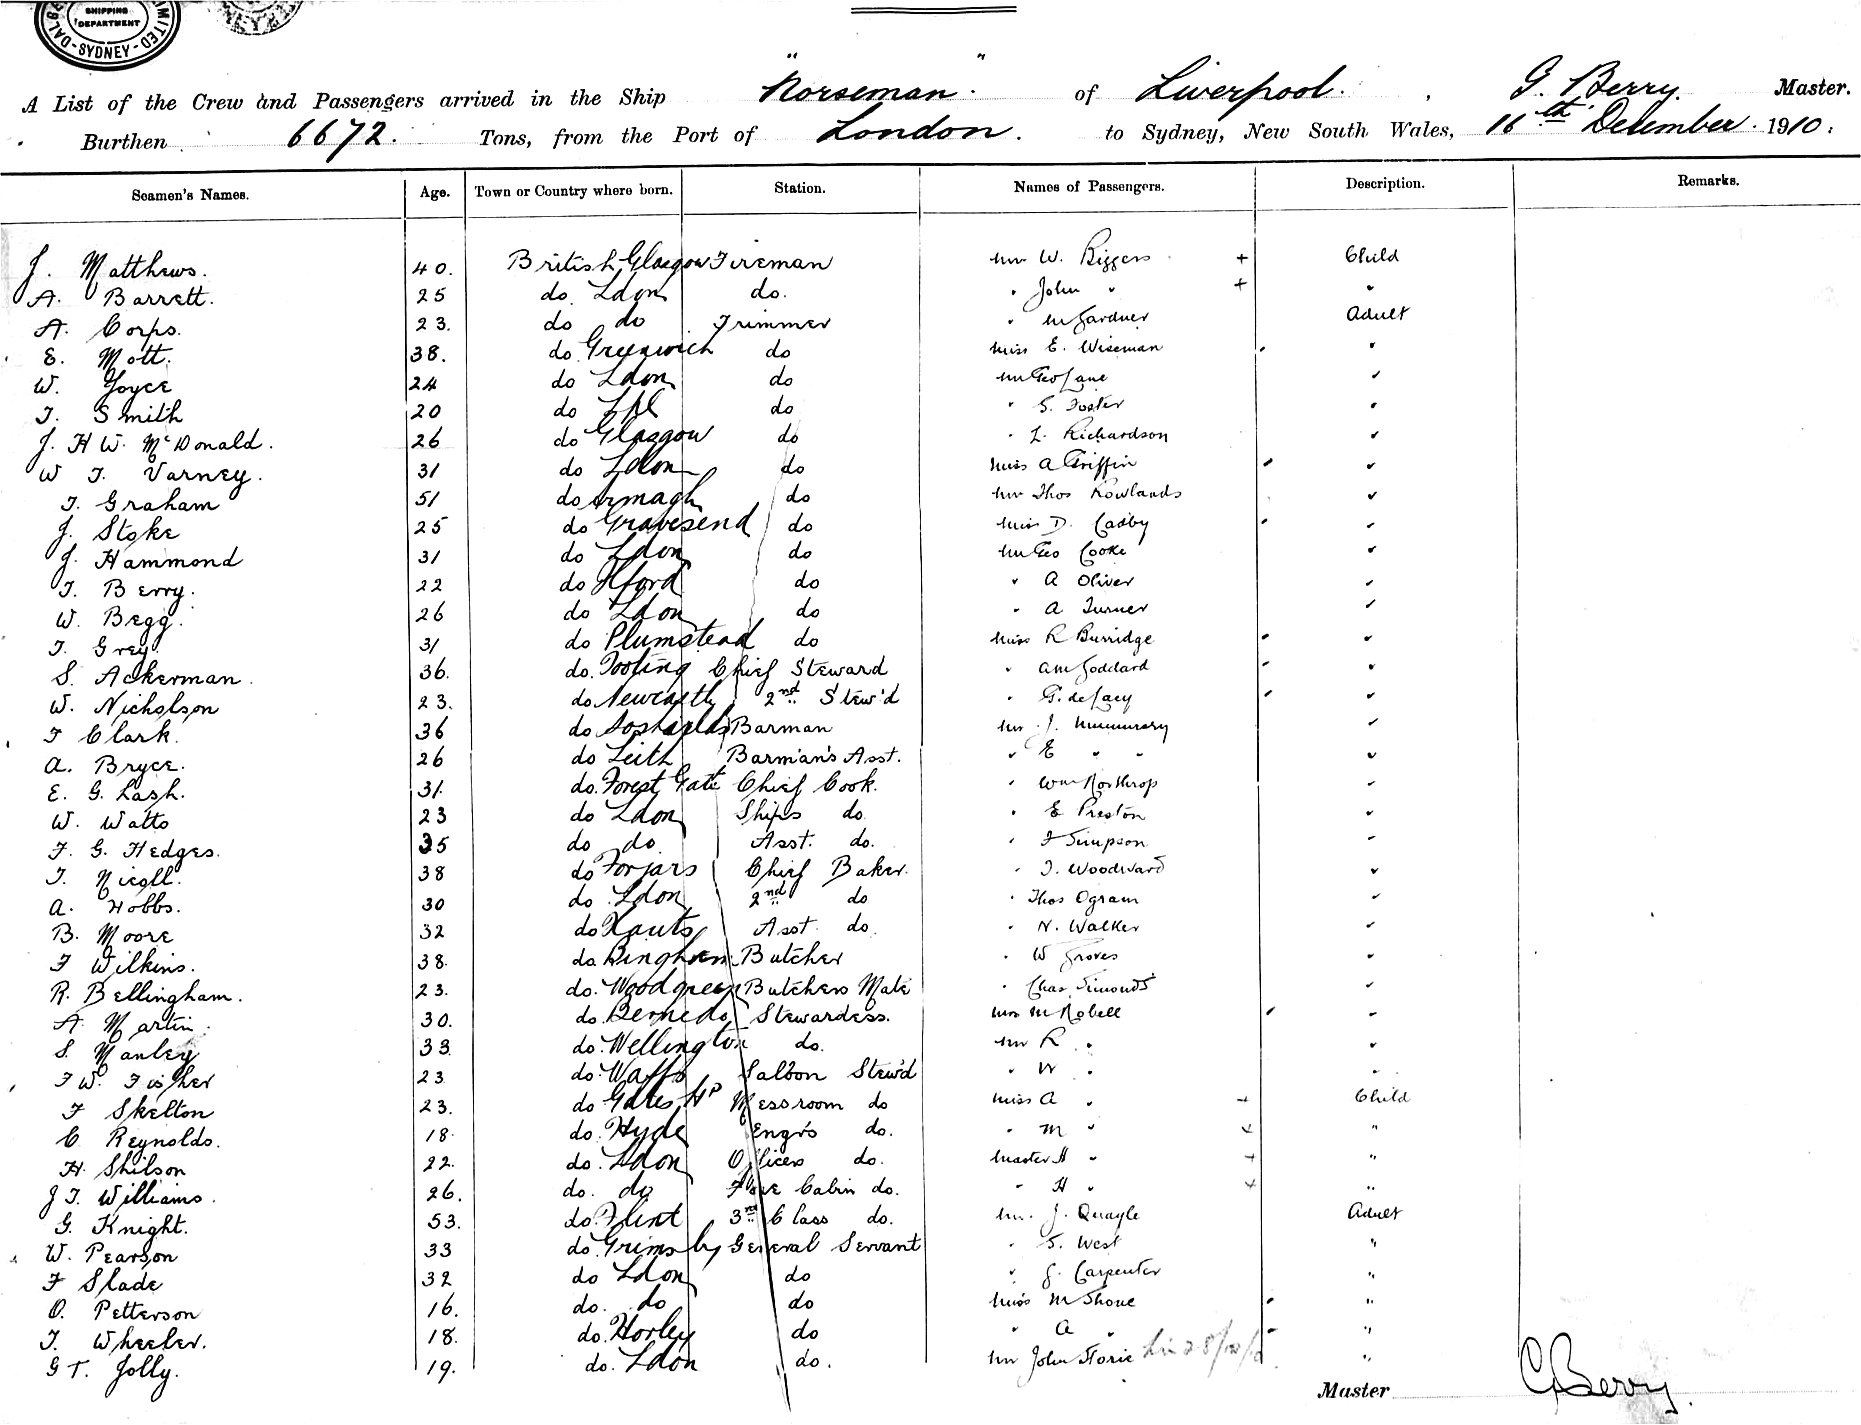 SHIPPING
DEPARTMENT
SYDNEY
A List of the Crew and Passengers arrived in the Ship "Norseman" of Liverpool. G. Berry. Master.
Burthen 6672. Tons, from the Port of London. to Sydney, New South Wales, 16th December 1910.
Seamen's Names. Age. Town or Country where born. Station. Names of Passengers. Description. Remarks.
J. Matthews. 40. British Glasgow Fireman W. Biggers + Child
A. Barrett. 25 do. Ldon do. " John " + "
A. Corps. 23. do do Trimmer " Gardner Adult
E. Mott. 38. do Greenwich do Miss E. Wiseman "
W. Joyce 24 do Ldon do Mr Geo Lane "
T. Smith 20 do Lpl do " S. Foster "
J. H W. McDonald. 26 do Glasgow do " L. Richardson "
W T. Varney. 31 do Ldon do Miss A Griffin "
T. Graham 51 do Armagh do Mr Thos Rowlands "
J. Stoke 25 do Gravesend do Miss D. Casby "
J. Hammond 31 do Ldon do Mr Geo Cooke "
T. Berry. 22 do Ilford do " A Oliver "
W. Begg. 26 do Ldon do " A Turner "
T. Grey 31 do Plumstead do Miss R Burridge "
S. Ackerman. 36. do. Tooting Chief Steward " Goddard "
W. Nicholson 23. do Newcastle 2nd Stew'd " G. de Lacy "
F Clark. 36 do Barman Mr J. "
A. Bryce. 26 do Leith Barman's Asst. " E " "
E. G. Lash. 31. do. Forest Gate Chief Cook. " Wm Northrop "
W. Watts 23 do Ldon Ships do. " E Preston "
F. G. Hedges. 35 do do. Asst. do. " F Simpson "
T. Nicoll. 38 do Forfars Chief Baker. " T. Woodward "
A. Hobbs. 30 do Ldon 2nd do " Thos Ogram "
B. Moore 32 do Asst. do. " N. Walker "
F Wilkins. 38. do. Bingham Butcher " W Groves "
R. Bellingham. 23. do. Woodgreen Butchers Mate " Chas Simonds "
A. Martin. 30. do. Stewardess. Mrs M Robell "
S. Manley 33. do. Wellington do. Mr R " "
F W. Fisher 23 do. Saloon Stew'd " W " "
F Skelton 23. do Gates Hd Messroom do Miss A " Child
C Reynolds. 18. do. Hyde Engrs do. " M " "
H. Shilson 22. do. Ldon Officers do. Master H " "
J T. Williams. 26. do. do Fore Cabin do. " H " "
G. Knight. 53. do. Flint 3rd Class do. Mr. J. Quayle Adult
W. Pearson 33 do. Grimsby General Servant " S. West "
F Slade 32 do Ldon do " G. Carpenter "
O. Petterson 16. do. do do Miss M Shone "
T. Wheeler. 18. do. Horley do " A " "
G T. Jolly. 19. do. Ldon do. Mr John Storie "
Master G Berry.